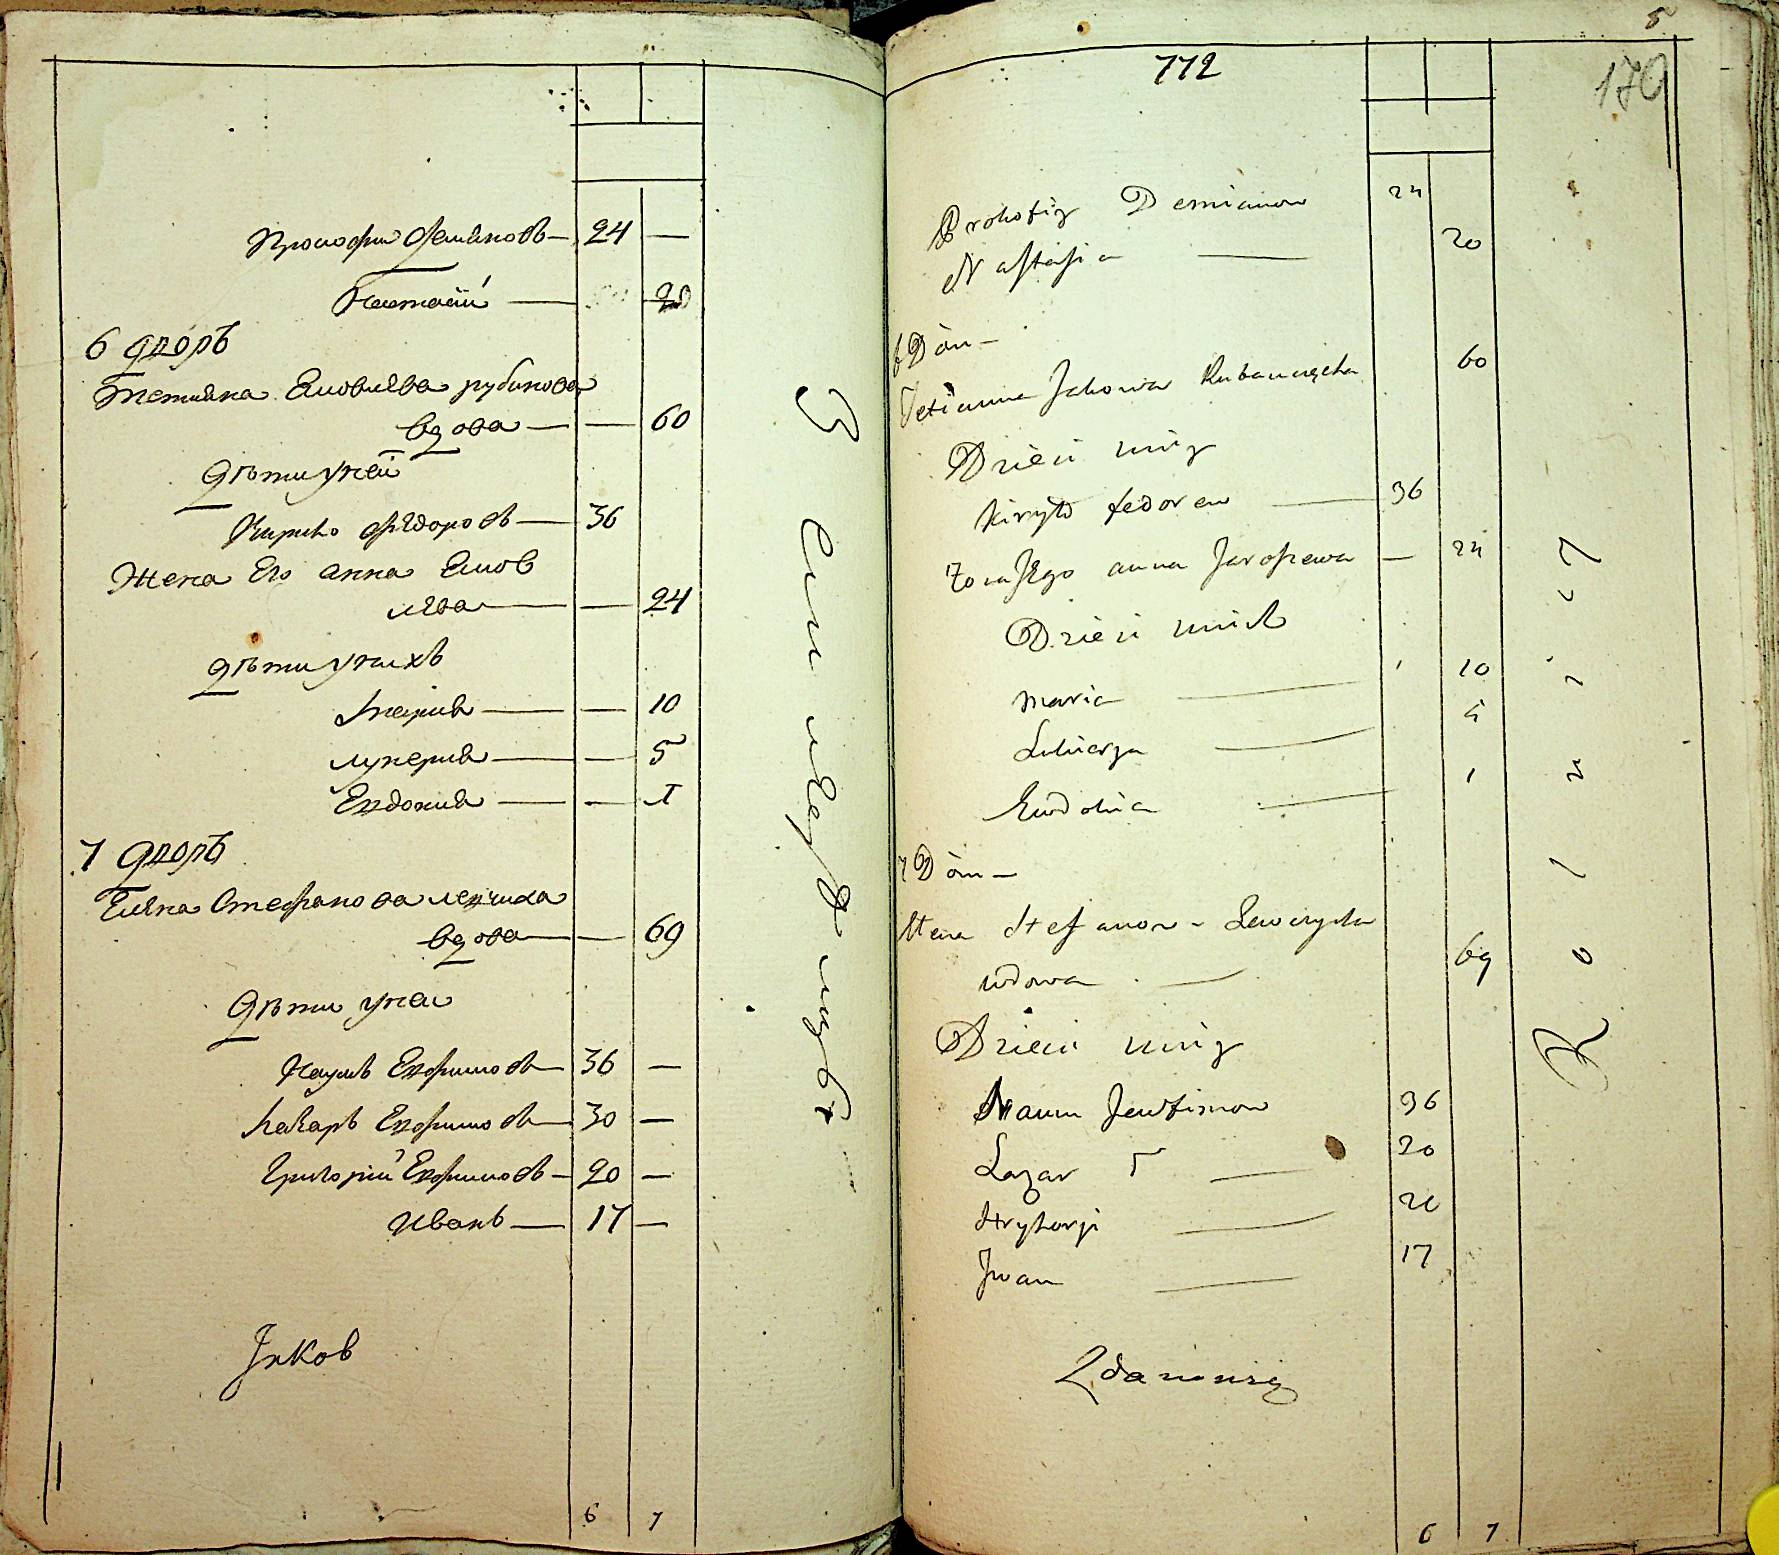 Прокофий Демяновъ — 24 —
Настасия — 20
6 дворъ
Тетияна Яковлева рубанова
вдова — — 60
дѣти у ней
Кирило Федоровъ — 36
Жена его анна Яков
лева — — 24
дѣти у нихъ
Мария — — 10
лукерия — — 5
Евдокия — — 1
7 дворъ
Елена Стефанова левчиха
вдова — — 69
Дѣти у неи
Наумъ Евфимовъ — 36 —
Лазарь Евфимовъ — 30 —
Григорий Евфимовъ — 20 —
Иванъ — 17 —
Яков
6 7
5
772
170
Prokofiy Demianow 24
Nastasia — 20
6 Dóm —
Tetianna Jakowa Rubanczycha 60
Dzieci u niey
Kiryło fedorow — 36
Zona Jego anna Jaroszewa — 24
Dzieci u nich
Maria — 10
Lukierya — 5
Ewdokia — 1
7 Dóm —
Ilena Stefanow - Lewczycha
wdowa — 69
Dzieci u niey
Naum Jewfimow 36
Lazar — 30
Hryhorji — 20
Jwan — 17
6 7